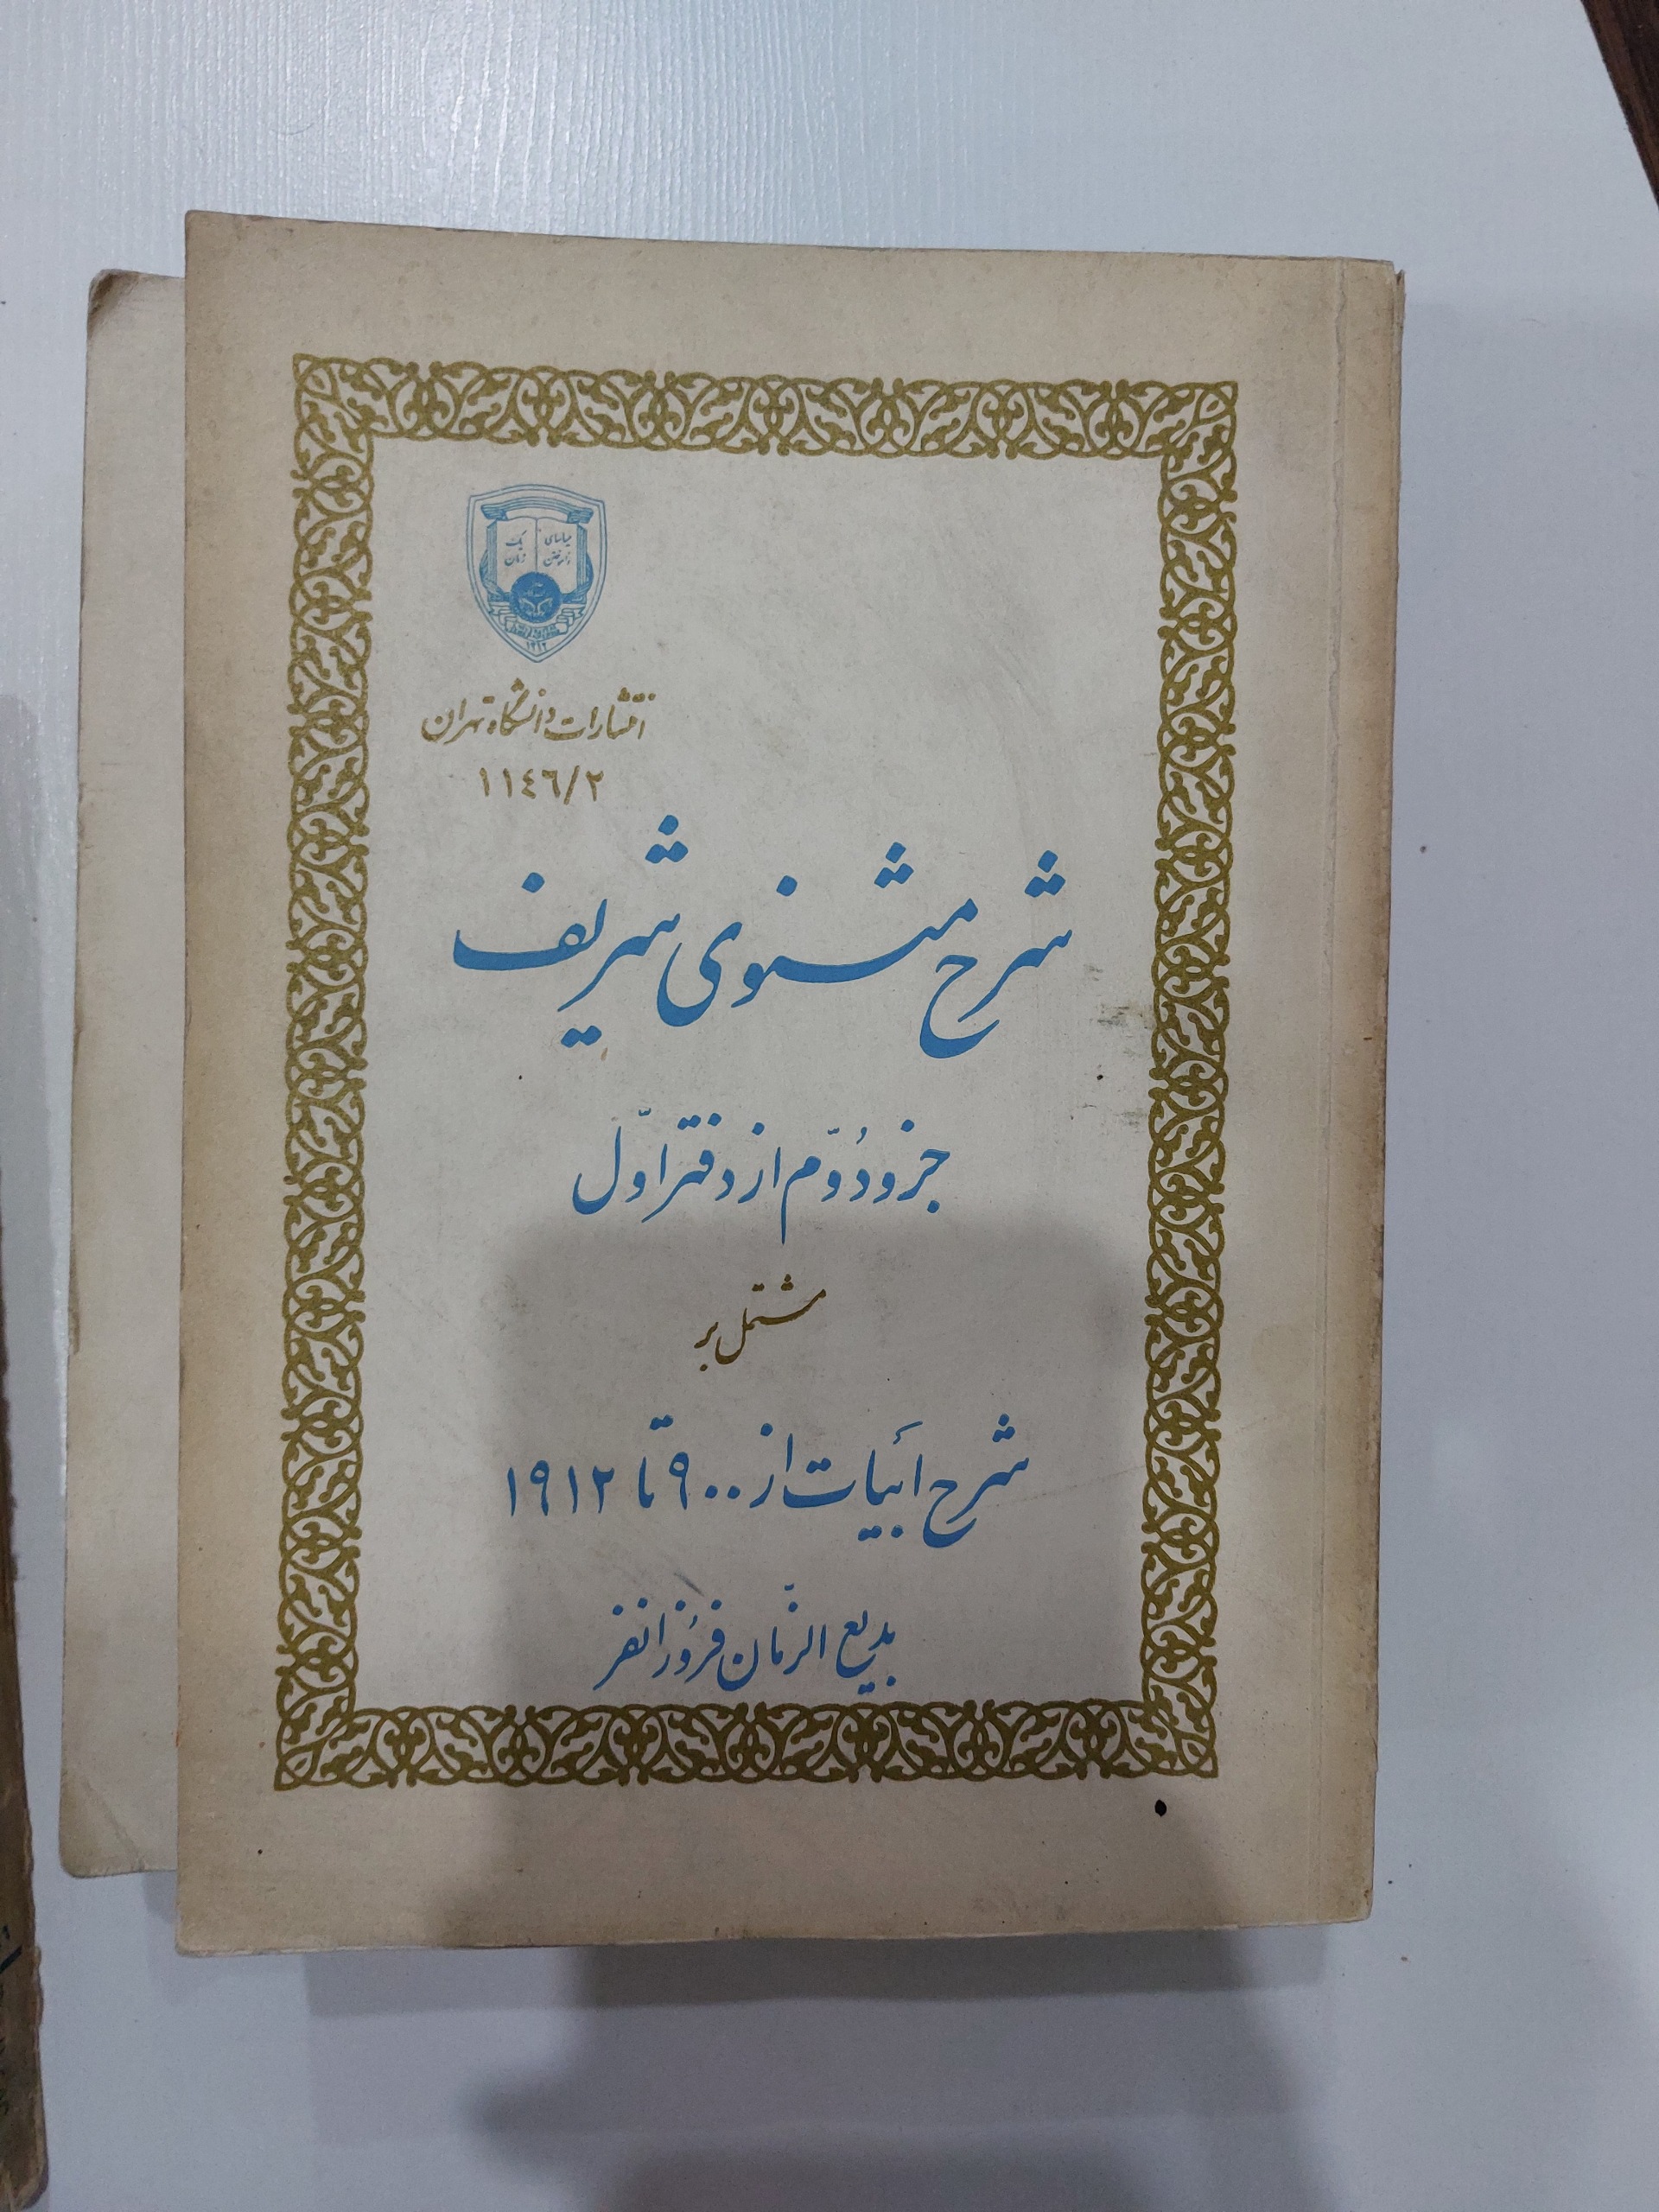 میاسای
ز آموختن
یک
زمان
۱۳۱۳
انتشارات دانشگاه تهران
۱۱۴۶/۲
شرح مثنوی شریف
جزو دُوّم از دفتر اوّل
مشتمل بر
شرح اَبیات از ۹۰۰ تا ۱۹۱۲
بدیع الزّمان فروزانفر